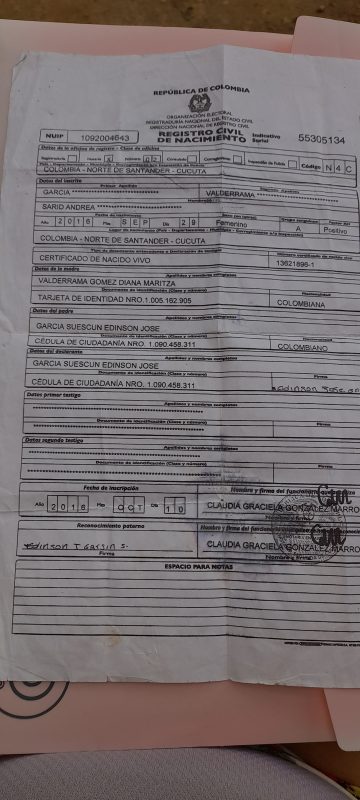 REPÚBLICA DE COLOMBIA
ORGANIZACIÓN ELECTORAL
REGISTRADURÍA NACIONAL DEL ESTADO CIVIL
DIRECCIÓN NACIONAL DE REGISTRO CIVIL
NUIP 1092004643 REGISTRO CIVIL DE NACIMIENTO Indicativo Serial 55305134
Datos de la oficina de registro - Clase de oficina
Registraduría Notaría X Número 02 Consulado Corregimiento Inspección de Policía Código N 4 C
COLOMBIA - NORTE DE SANTANDER - CUCUTA
Datos del inscrito
Primer Apellido Segundo Apellido
GARCIA VALDERRAMA
Nombre(s)
SARID ANDREA
Fecha de nacimiento Sexo (en letras) Grupo sanguíneo Factor RH
Año 2016 Mes SEP Día 29 Femenino A Positivo
COLOMBIA - NORTE DE SANTANDER - CUCUTA
Número certificado de nacido vivo
CERTIFICADO DE NACIDO VIVO 13621896-1
Datos de la madre
Apellidos y nombres completos
VALDERRAMA GOMEZ DIANA MARITZA
Documento de identificación (Clase y número) Nacionalidad
TARJETA DE IDENTIDAD NRO. 1.005.162.905 COLOMBIANA
Datos del padre
Apellidos y nombres completos
GARCIA SUESCUN EDINSON JOSE
Documento de identificación (Clase y número) Nacionalidad
CÉDULA DE CIUDADANÍA NRO. 1.090.458.311 COLOMBIANO
Datos del declarante
Apellidos y nombres completos
GARCIA SUESCUN EDINSON JOSE
Documento de identificación (Clase y número) Firma
CÉDULA DE CIUDADANÍA NRO. 1.090.458.311 Edinson Jose
Datos primer testigo
Apellidos y nombres completos
Documento de identificación (Clase y número) Firma
Datos segundo testigo
Apellidos y nombres completos
Documento de identificación (Clase y número) Firma
Fecha de inscripción Nombre y firma del funcionario que autoriza
Año 2016 Mes OCT Día 10 CLAUDIA GRACIELA GONZALEZ MARRO
Nombre y firma
Reconocimiento paterno Nombre y firma del funcionario
Edinson J Garcia S. CLAUDIA GRACIELA GONZALEZ MARRO
Firma Nombre y firma
ESPACIO PARA NOTAS